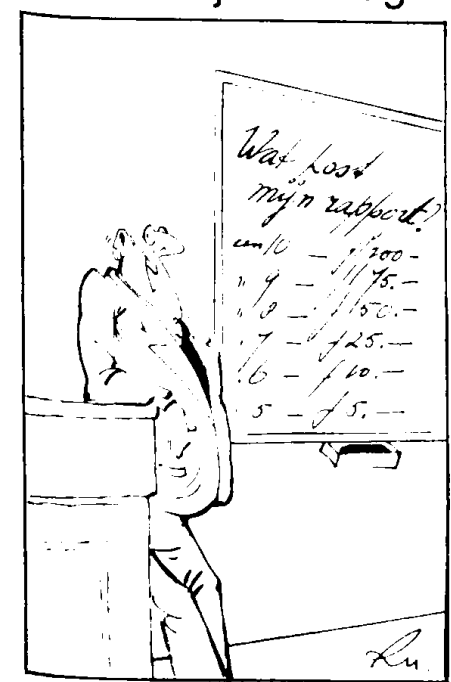 Wat kost
mijn rapport?
een 10 - f 100 -
" 9 - f 75.-
" 8 - f 50.-
" 7 - f 25.-
" 6 - f 10.-
" 5 - f 5.-